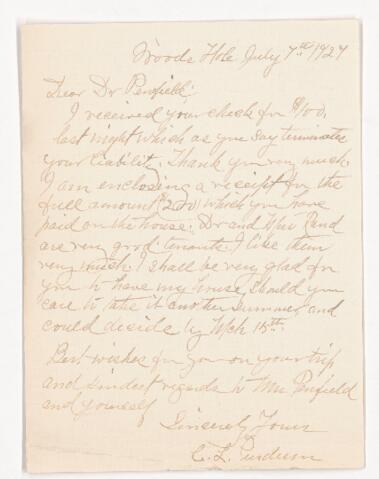 Woods Hole July 7th 1927
Dear Dr Penfield;
I received your check for $100,
last night which as you say terminates
your liability. Thank you very much.
I am enclosing a receipt for the
full amount $200 which you have
paid on the house. Dr and Mrs Rand
are very good tenants. I like them
very much. I shall be very glad for
you to have my house should you
care to take it another summer and
could decide by Mch 15th.
Best wishes for you on your trip
and kindest regards to Mrs Penfield
and yourself
Sincerely Yours
C. L.